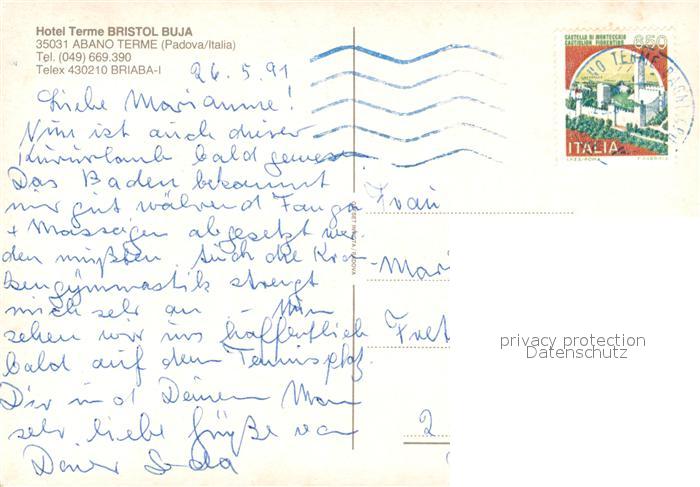 Hotel Terme BRISTOL BUJA
35031 ABANO TERME (Padova/Italia)
Tel. (049) 669.390
Telex 430210 BRIABA-I
26.5.91
Liebe Marianne!
Nun ist auch dieser
Kururlaub bald gewesen.
Das Baden bekommt
mir gut während Fango
+ Massagen abgesetzt wer-
den mußten. Auch die Kran-
kengymnastik strengt
mich sehr an. - Nun
sehen wir uns hoffentlich
bald auf dem Tennisplatz.
Dir und Deinem Mann
sehr liebe Grüße von
Deiner
CASTELLO DI MONTECCHIO
CASTIGLION FIORENTINO
650
ITALIA
I.P.Z.S. - ROMA
ABANO TERME
Frau
Mari
Fret
2
privacy protection
Datenschutz